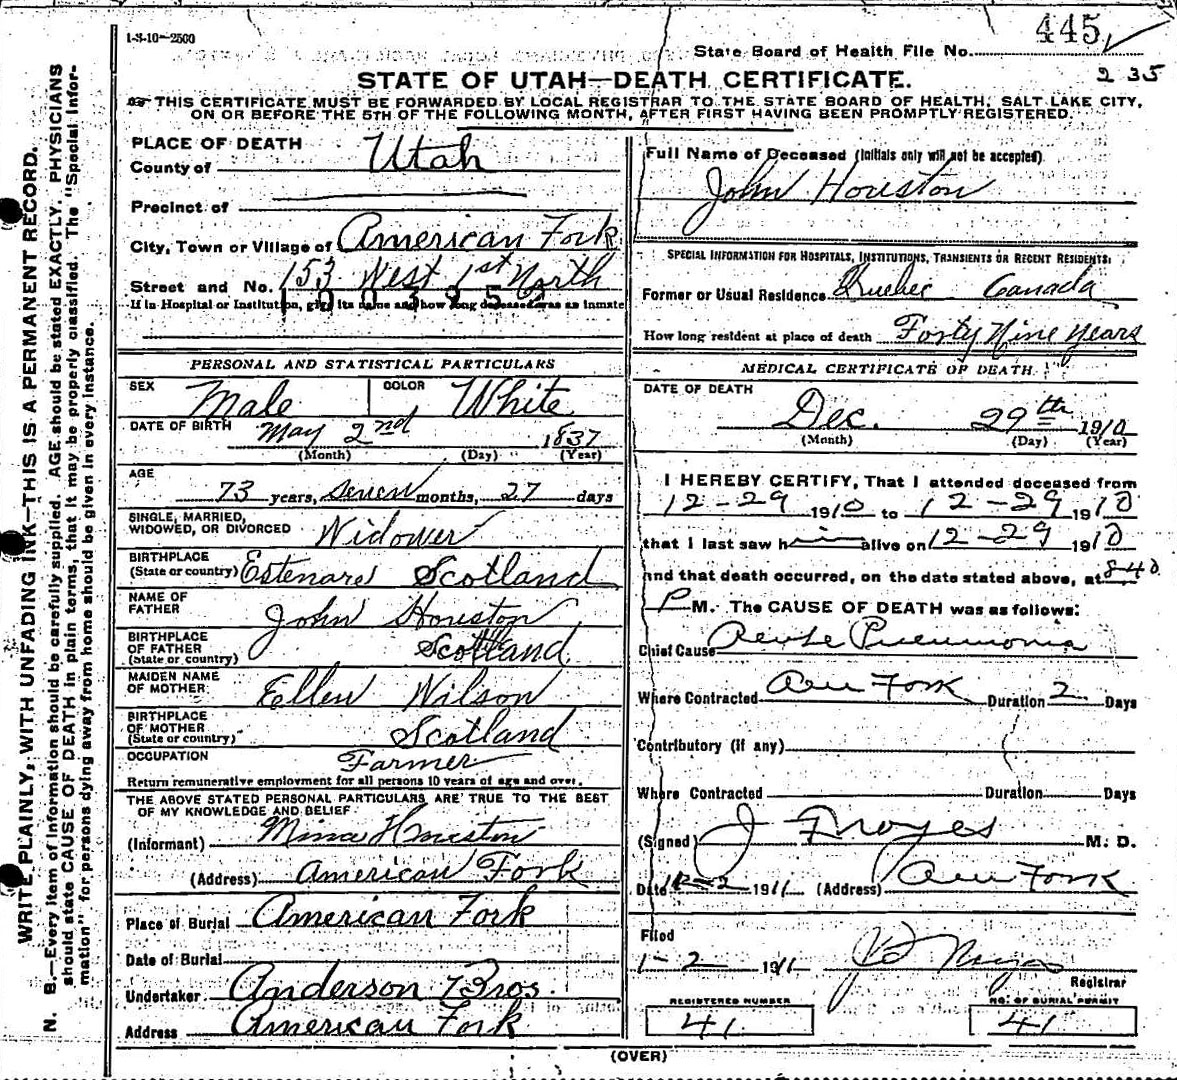 1-3-10—2500
State Board of Health File No. 445
235
STATE OF UTAH—DEATH CERTIFICATE.
THIS CERTIFICATE MUST BE FORWARDED BY LOCAL REGISTRAR TO THE STATE BOARD OF HEALTH, SALT LAKE CITY,
ON OR BEFORE THE 5TH OF THE FOLLOWING MONTH, AFTER FIRST HAVING BEEN PROMPTLY REGISTERED.
WRITE PLAINLY, WITH UNFADING INK—THIS IS A PERMANENT RECORD.
N. B.—Every item of information should be carefully supplied. AGE should be stated EXACTLY. PHYSICIANS
should state CAUSE OF DEATH in plain terms, that it may be properly classified. The "Special Infor-
mation" for persons dying away from home should be given in every instance.
PLACE OF DEATH
County of Utah
Precinct of
City, Town or Village of American Fork
Street and No. 153 West 1st North
If in Hospital or Institution, give its name and how long deceased was as inmate
PERSONAL AND STATISTICAL PARTICULARS
SEX Male COLOR White
DATE OF BIRTH May 2nd 1837
(Month) (Day) (Year)
AGE
73 years, Seven months, 27 days
SINGLE, MARRIED,
WIDOWED, OR DIVORCED Widower
BIRTHPLACE
(State or country) Scotland
NAME OF
FATHER John Houston
BIRTHPLACE
OF FATHER
(State or country) Scotland
MAIDEN NAME
OF MOTHER Ellen Wilson
BIRTHPLACE
OF MOTHER
(State or country) Scotland
OCCUPATION Farmer
Return remunerative employment for all persons 10 years of age and over.
THE ABOVE STATED PERSONAL PARTICULARS ARE TRUE TO THE BEST
OF MY KNOWLEDGE AND BELIEF
(Informant) Mina Houston
(Address) American Fork
Place of Burial American Fork
Date of Burial
Undertaker Anderson Bros.
Address American Fork
Full Name of Deceased (Initials only will not be accepted)
John Houston
SPECIAL INFORMATION FOR HOSPITALS, INSTITUTIONS, TRANSIENTS OR RECENT RESIDENTS:
Former or Usual Residence Quebec Canada
How long resident at place of death Forty Nine years
MEDICAL CERTIFICATE OF DEATH
DATE OF DEATH
Dec. 29th 1910
(Month) (Day) (Year)
I HEREBY CERTIFY, That I attended deceased from
12-29 1910 to 12-29 1910
that I last saw him alive on 12-29 1910
and that death occurred, on the date stated above, at 840
P M. The CAUSE OF DEATH was as follows:
Chief Cause Acute Pneumonia
Where Contracted Am Fork Duration 2 Days
Contributory (if any)
Where Contracted Duration Days
(Signed) J F Noyes M. D.
Date 1911 (Address) Am Fork
Filed
1-2 1911
Registrar
REGISTERED NUMBER
41
NO. OF BURIAL PERMIT
41
(OVER)